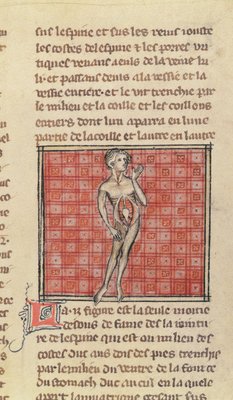 sus lespine et sus les reins iouste
les costes de lespine et les pores uri
tiques uenans a eulz de la ueine ku
li et passans deuis a la uessie et la
uessie entiere et le uit trenchie par
le milieu et la coille et les coillons
entiers dont lun apara en lune
partie de la coille et lautre en lautre
La figure est la seule moitie
desous de fame des la iointu
re de lespine qui est ou milieu des
costes duc aus dois des pies trenchie
par le milieu du uentre de la fource
du stomach duc au cul en la quele
apart la matrice gesant sus